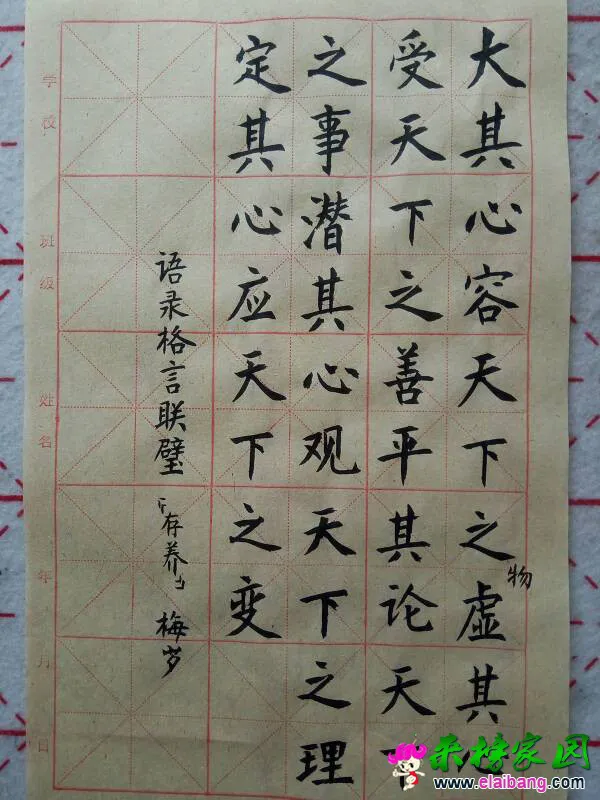 大其心容天下之物虚其心
受天下之善平其论天下
之事潜其心观天下之理
定其心应天下之变
语录格言联璧「存养」梅
学校 班级 姓名 年 月 日
来榜家园
www.elaibang.com